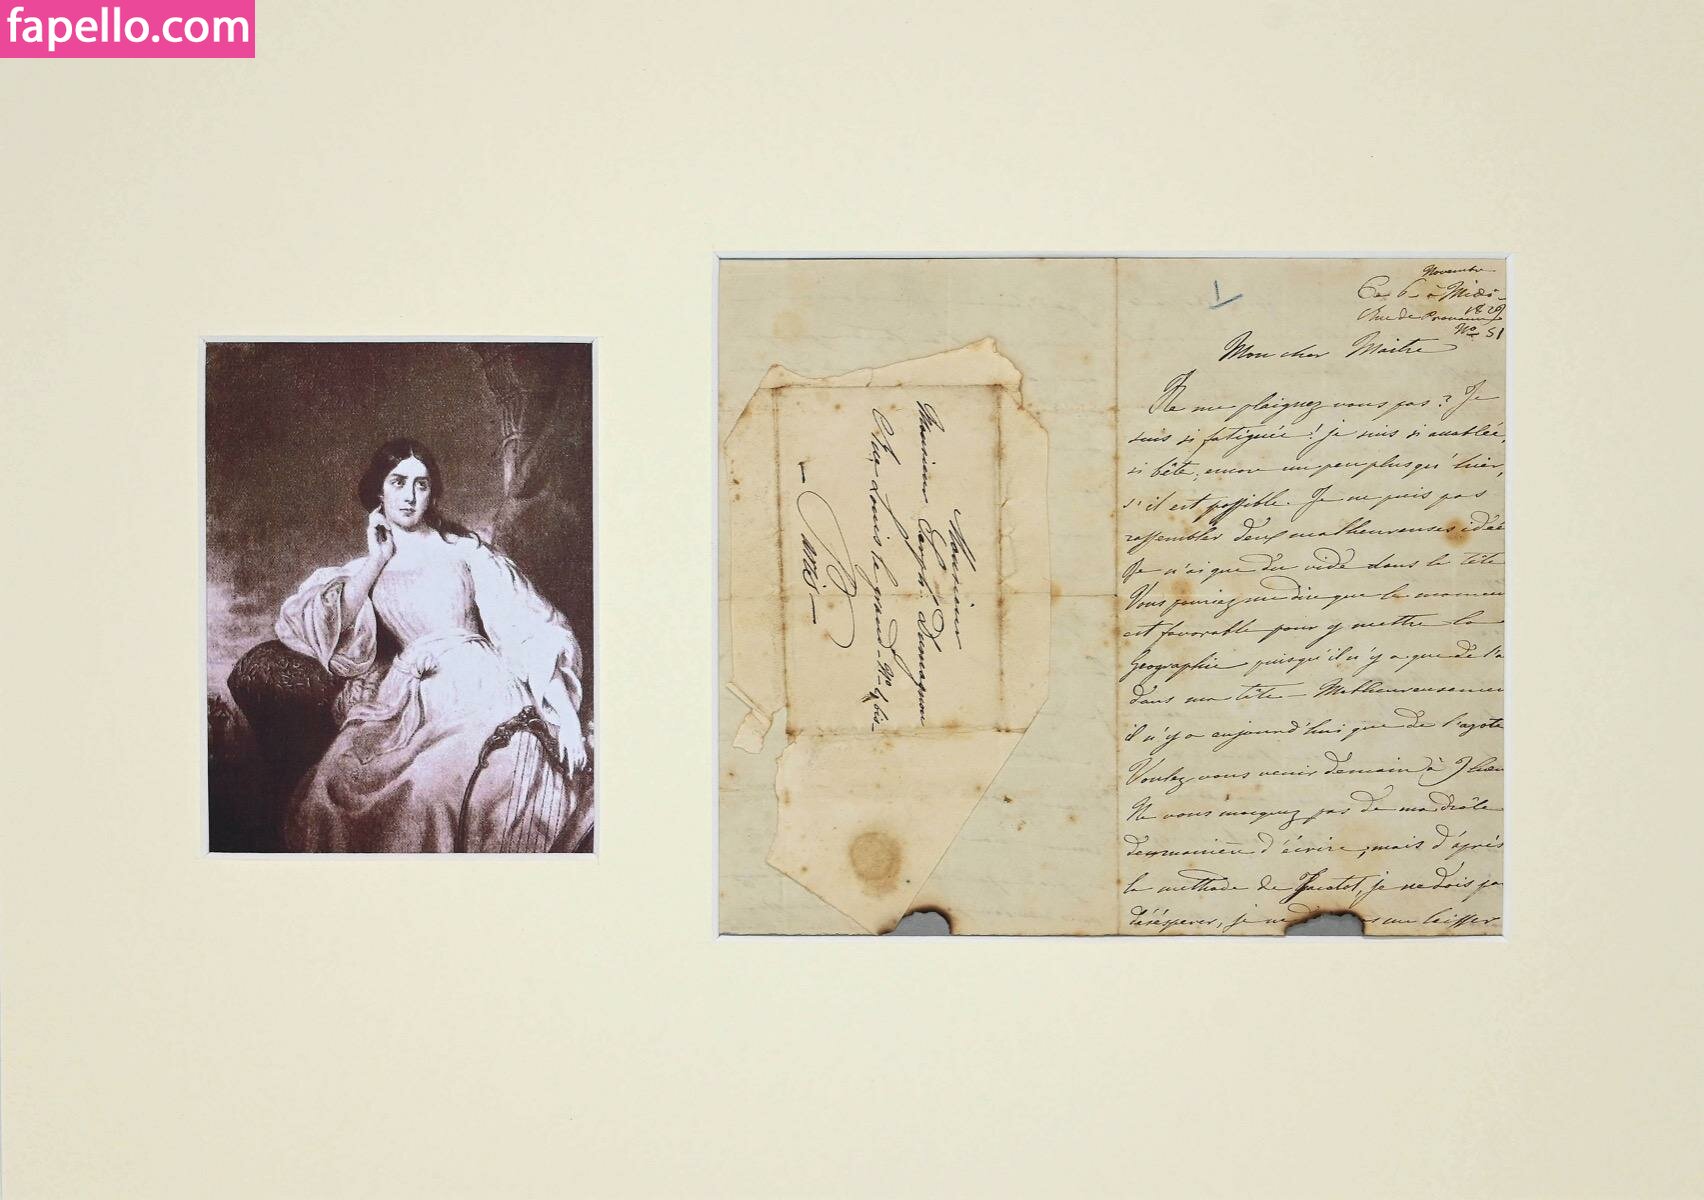 fapello.com
Monsieur
Monsieur Joseph
Rue Louis le grand - No 9 bis -
- Paris -
Novembre
Ce 6 - à Midi -
1829
Rue de Provence
No 51
Mon cher Maitre
Ne me plaignez vous pas? Je
suis si fatiguée! je suis si accablée,
si bête, encore un peu plus qu'hier,
s'il est possible. Je ne puis pas
rassembler deux malheureuses idées
Je n'ai que du vide dans la tête
Vous pourriez me dire que le moment
est favorable pour y mettre la
Géographie puisqu'il n'y a que de l'a
dans ma tête - Malheureusemen
il n'y a aujourd'hui que de l'azote
Voulez vous venir demain à
Ne vous moquez pas de ma drôle
de manière d'écrire, mais d'après
la methode de Jacotot, je ne dois pa
désésperer, je ne me laisser